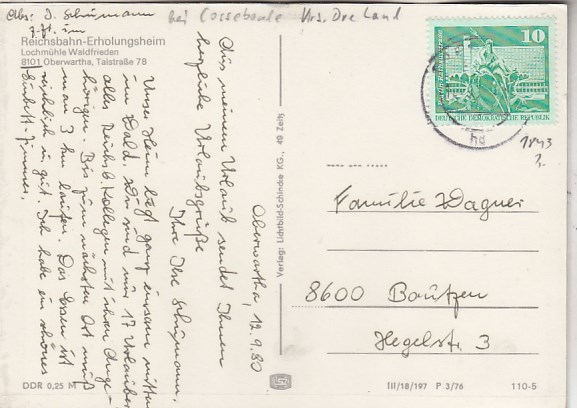 Abs: I. Schümann
z. Zt. im
bei Cossebaude Krs. Dre Land
Reichsbahn-Erholungsheim
Lochmühle Waldfrieden
8101 Oberwartha, Talstraße 78
Oberwartha, 12.9.80
Aus meinem Urlaub sendet Ihnen
herzliche Urlaubsgrüße
Ihre Ilse Schümann,
Unser Heim liegt ganz einsam mitten
im Wald. Wir sind nur 17 Urlauber
alles Reichsb. Kollegen mit ihren Ange-
hörigen. Bis zum nächsten Ort muß
man 3 km laufen. Das Essen ist
reichlich u. gut. Ich habe ein schönes
Einbett-Zimmer.
DDR 0,25 M
Verlag: Lichtbild-Schincke KG., 49 Zeitz
10
DEUTSCHE DEMOKRATISCHE REPUBLIK
Familie Wagner
8600 Bautzen
Hegelstr. 3
III/18/197 P 3/76 110-5